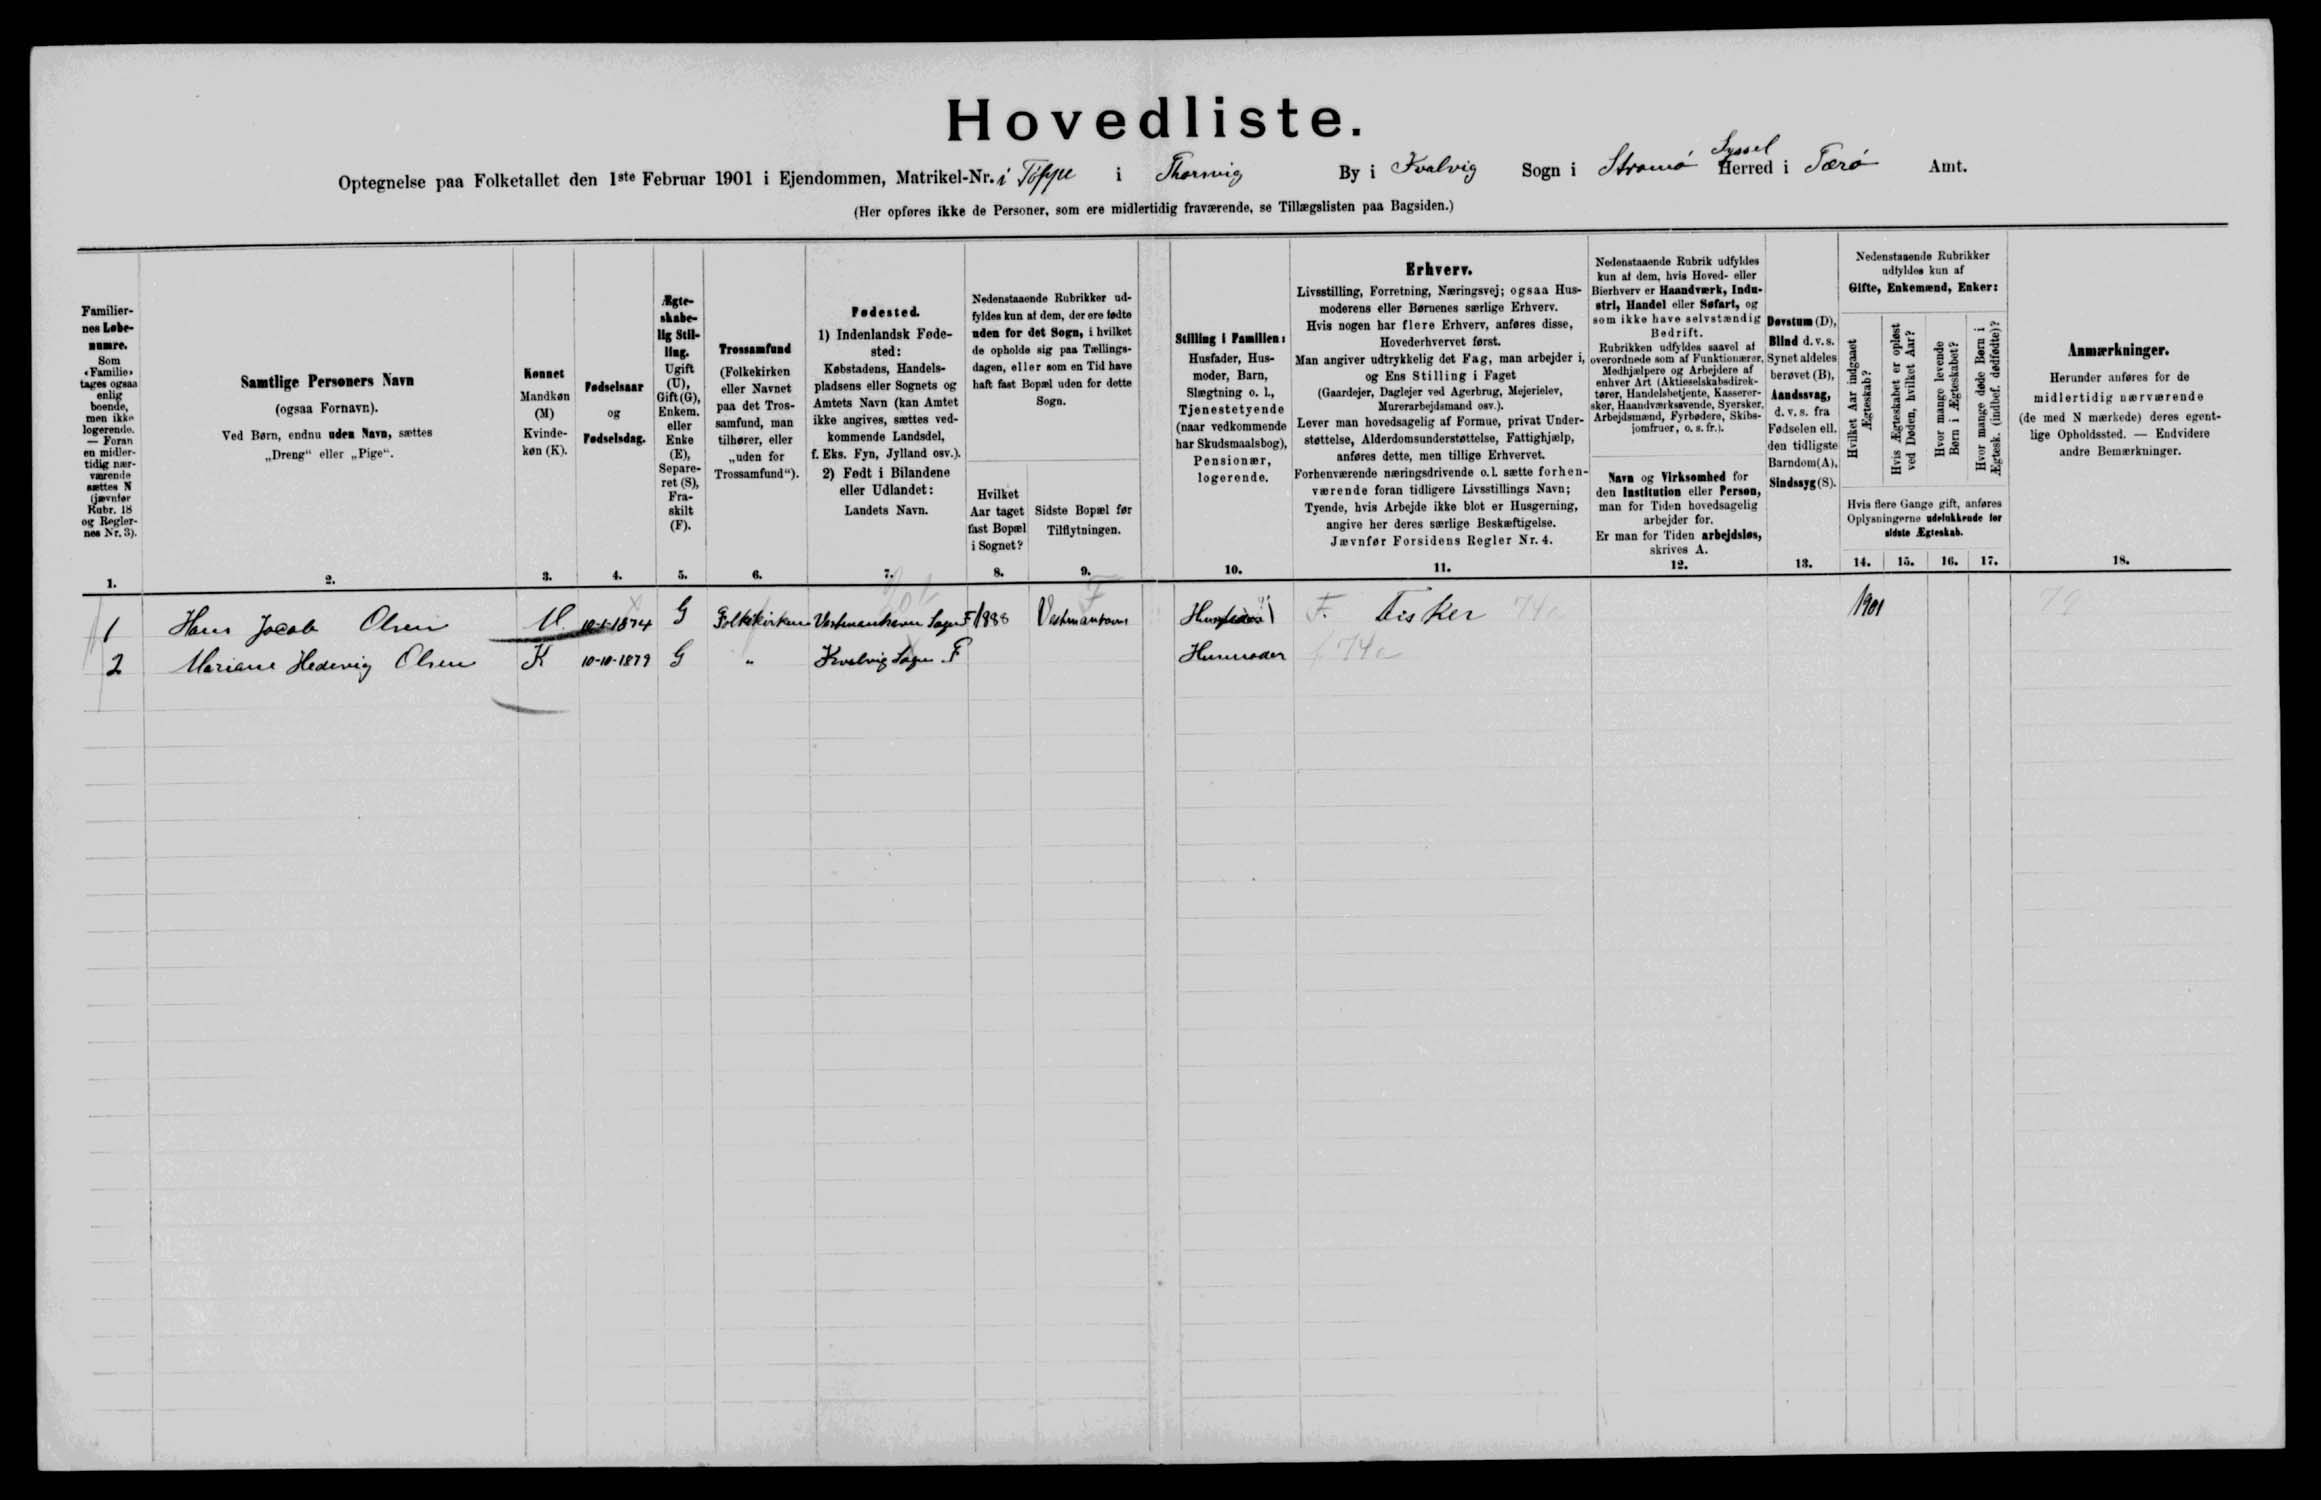 Hovedliste.
Syssel
Optegnelse paa Folketallet den 1ste Februar 1901 i Ejendommen, Matrikel-Nr. i i Thorsvig By i Kvalvig Sogn i Stromö Herred i Færö Amt.
(Her opføres ikke de Personer, som ere midlertidig fraværende, se Tillægslisten paa Bagsiden.)
Familiernes Løbenumre.
Som «Familie» tages ogsaa enlig boende, men ikke logerende. — Foran en midlertidig nærværende sættes N (jævnfør Rubr. 18 og Reglernes Nr. 3).
1.
Samtlige Personers Navn
(ogsaa Fornavn).
Ved Børn, endnu uden Navn, sættes
„Dreng“ eller „Pige“.
2.
Kønnet
Mandkøn
(M)
Kvinde-
køn (K).
3.
Fødselsaar
og
Fødselsdag.
4.
Ægte-
skabe-
lig Stil-
ling.
Ugift
(U),
Gift (G),
Enkem.
eller
Enke
(E),
Separe-
ret (S),
Fra-
skilt
(F).
5.
Trossamfund
(Folkekirken
eller Navnet
paa det Tros-
samfund, man
tilhører, eller
„uden for
Trossamfund“).
6.
Fødested.
1) Indenlandsk Føde-
sted:
Købstadens, Handels-
pladsens eller Sognets og
Amtets Navn (kan Amtet
ikke angives, sættes ved-
kommende Landsdel,
f. Eks. Fyn, Jylland osv.).
2) Født i Bilandene
eller Udlandet:
Landets Navn.
7.
Nedenstaaende Rubrikker ud-
fyldes kun af dem, der ere fødte
uden for det Sogn, i hvilket
de opholde sig paa Tællings-
dagen, eller som en Tid have
haft fast Bopæl uden for dette
Sogn.
Hvilket
Aar taget
fast Bopæl
i Sognet?
8.
Sidste Bopæl før
Tilflytningen.
9.
Stilling i Familien:
Husfader, Hus-
moder, Barn,
Slægtning o. l.,
Tjenestetyende
(naar vedkommende
har Skudsmaalsbog),
Pensionær,
logerende.
10.
Erhverv.
Livsstilling, Forretning, Næringsvej; ogsaa Hus-
moderens eller Børnenes særlige Erhverv.
Hvis nogen har flere Erhverv, anføres disse,
Hovederhvervet først.
Man angiver udtrykkelig det Fag, man arbejder i,
og Ens Stilling i Faget
(Gaardejer, Daglejer ved Agerbrug, Mejerielev,
Murerarbejdsmand osv.).
Lever man hovedsagelig af Formue, privat Under-
støttelse, Alderdomsunderstøttelse, Fattighjælp,
anføres dette, men tillige Erhvervet.
Forhenværende næringsdrivende o. l. sætte forhen-
værende foran tidligere Livsstillings Navn;
Tyende, hvis Arbejde ikke blot er Husgerning,
angive her deres særlige Beskæftigelse.
Jævnfør Forsidens Regler Nr. 4.
11.
Nedenstaaende Rubrik udfyldes
kun af dem, hvis Hoved- eller
Bierhverv er Haandværk, Indu-
stri, Handel eller Søfart, og
som ikke have selvstændig
Bedrift.
Rubrikken udfyldes saavel af
overordnede som af Funktionærer,
Medhjælpere og Arbejdere af
enhver Art (Aktieselskabsdirek-
tører, Handelsbetjente, Kasserer-
sker, Haandværkssvende, Syersker,
Arbejdsmænd, Fyrbødere, Skibs-
jomfruer, o. s. fr.).
Navn og Virksomhed for
den Institution eller Person,
man for Tiden hovedsagelig
arbejder for.
Er man for Tiden arbejdsløs,
skrives A.
12.
Døvstum (D),
Blind d. v. s.
Synet aldeles
berøvet (B),
Aandssvag,
d. v. s. fra
Fødselen ell.
den tidligste
Barndom (A),
Sindssyg (S).
13.
Nedenstaaende Rubrikker
udfyldes kun af
Gifte, Enkemænd, Enker:
Hvilket Aar indgaaet
Ægteskab?
Hvis Ægteskabet er opløst
ved Døden, hvilket Aar?
Hvor mange levende
Børn i Ægteskabet?
Hvor mange døde Børn i
Ægtesk. (indbef. dødfødte)?
Hvis flere Gange gift, anføres
Oplysningerne udelukkende for
sidste Ægteskab.
14. 15. 16. 17.
Anmærkninger.
Herunder anføres for de
midlertidig nærværende
(de med N mærkede) deres egent-
lige Opholdssted. — Endvidere
andre Bemærkninger.
18.
1 Hans Jacob Olsen M. 10-1-1874 G Folkekirken Vestmanhavn Sogn F 1888 Vestmanhavn Husfader F. Fisker 74a 1901
2 Mariane Hedevig Olsen K 10-10-1879 G „ Kvalvig Sogn F Husmoder f 74a